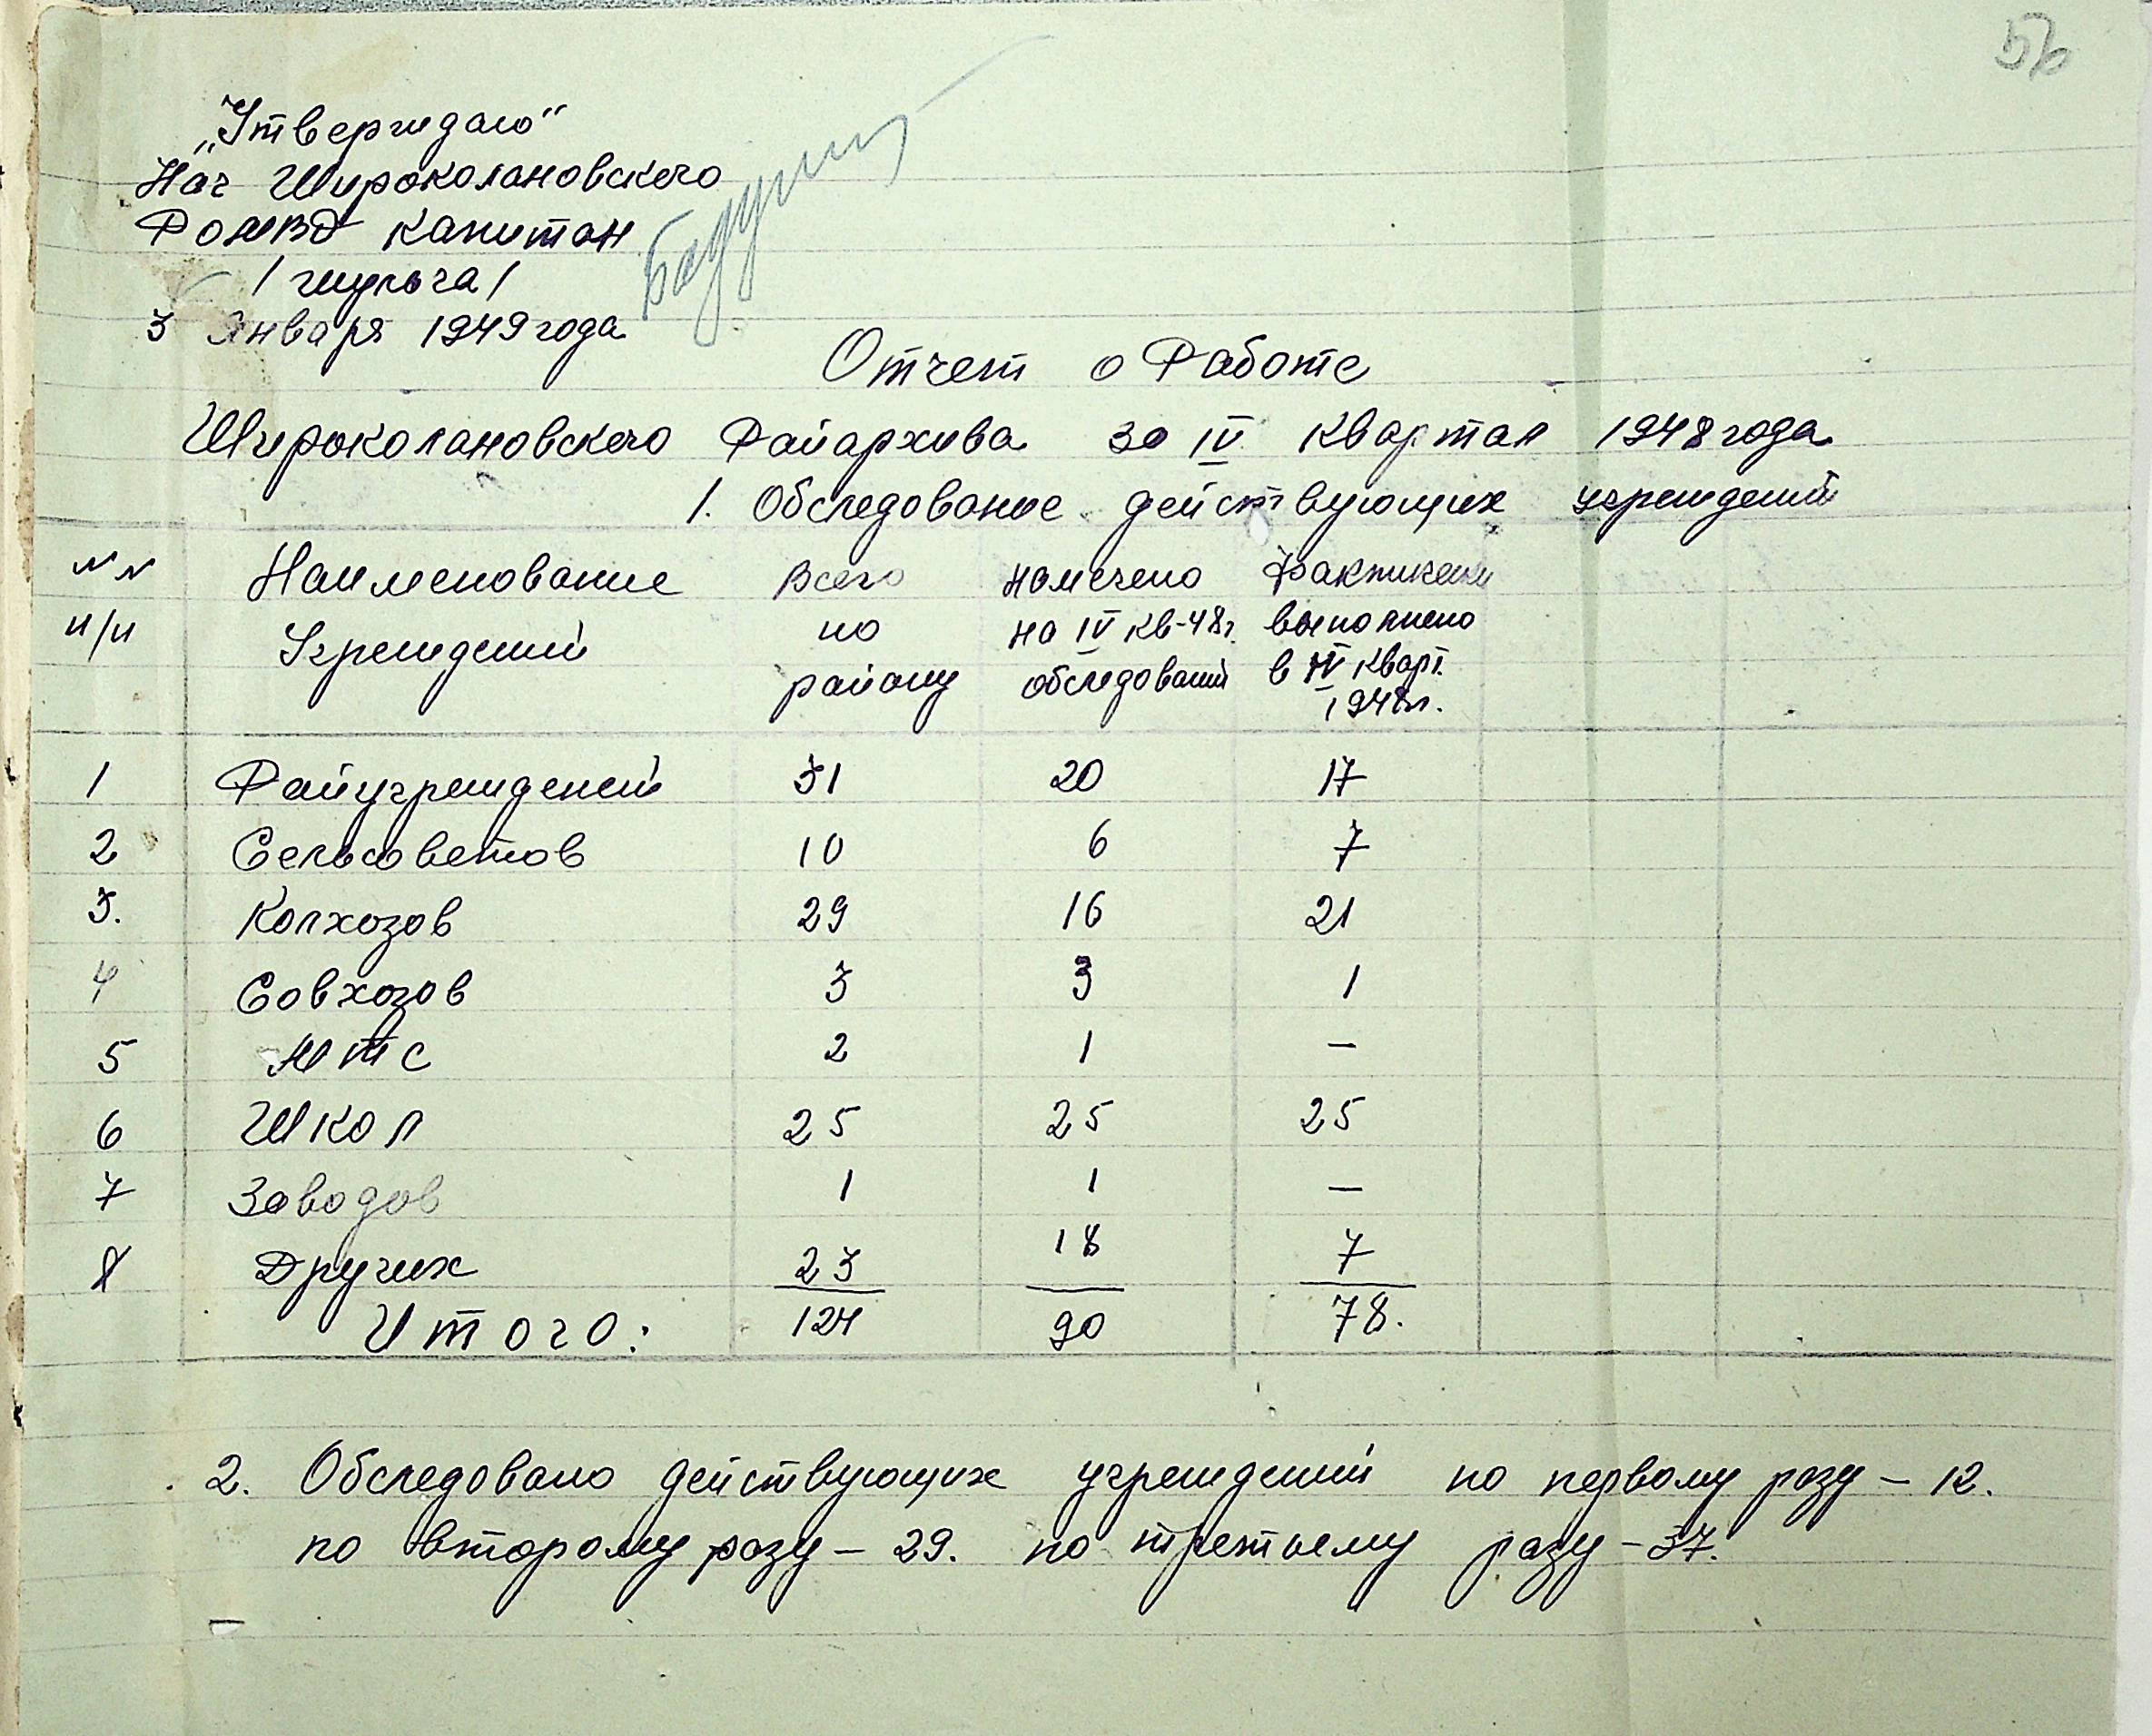 56
„Утверждаю“
Нач Широколановского
РОМВД капитан
/ Шульга /
3 Января 1949 года
Отчет о Работе
Широколановского Райархива за IV квартал 1948 года
1. Обследование действующих учреждений
NN Наименование всего намечено фактически
п/п Учреждений по на IV кв-48г. выполнено
району обследований в IV кварт.
1948г.
1 Райучреждений 31 20 17
2 Сельсоветов 10 6 7
3. Колхозов 29 16 21
4 Совхозов 3 3 1
5 МТС 2 1 —
6 Школ 25 25 25
7 Заводов 1 1 —
8 Других 23 18 7
Итого: 124 90 78.
2. Обследовано действующих учреждений по первому разу – 12.
по второму разу – 29. по третьему разу – 37.